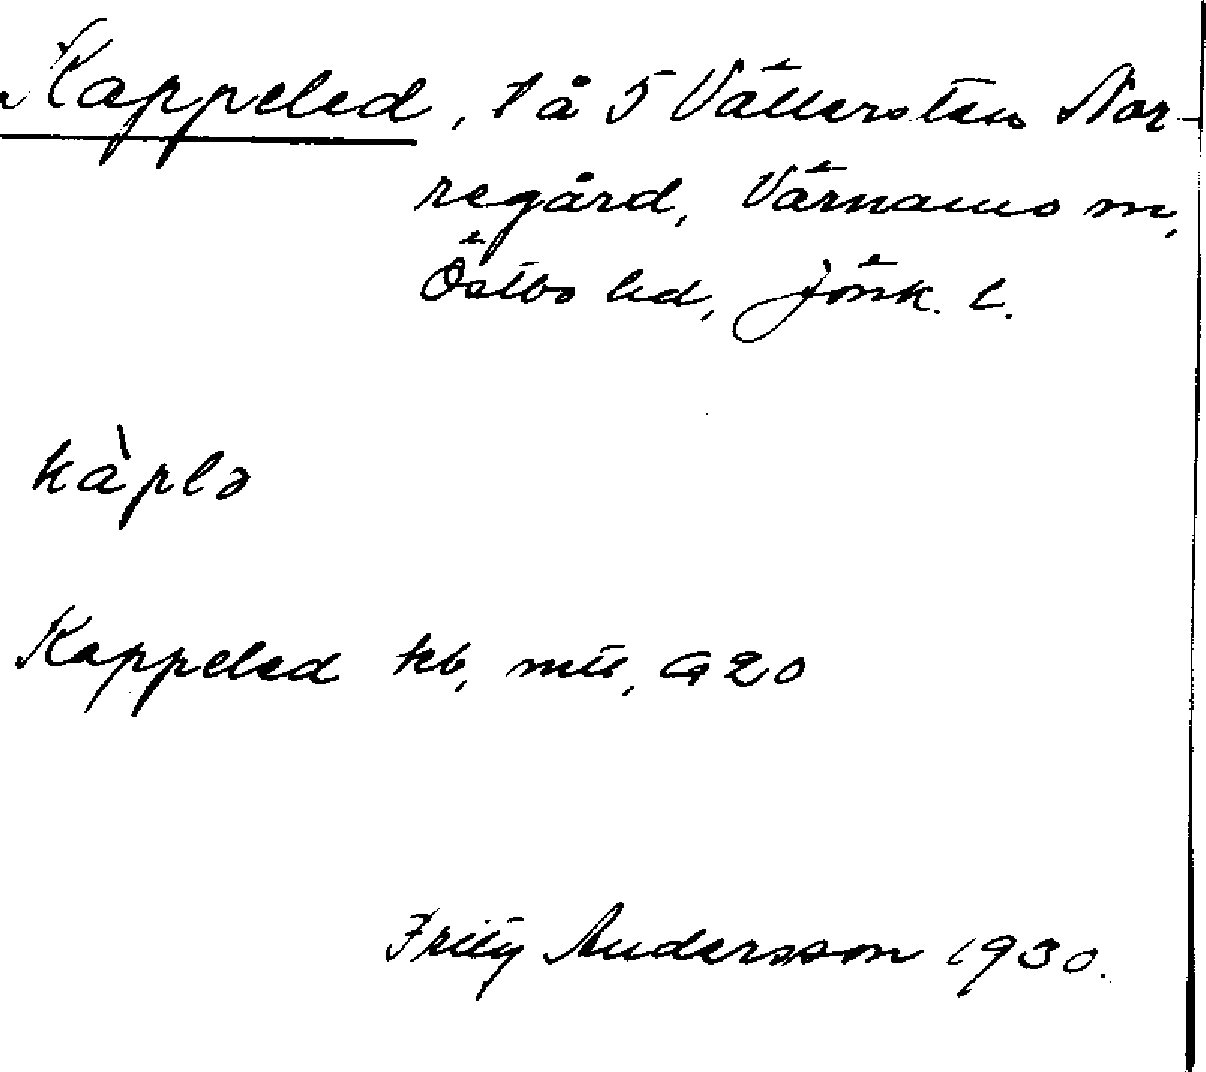 Kappeled, t å 5 Vällersten Nor-
regård, Värnamo sn,
Östbo hd, Jönk. l.
kàplə
Kappeled kb, mtl, G20
Fritz Andersson 1930.